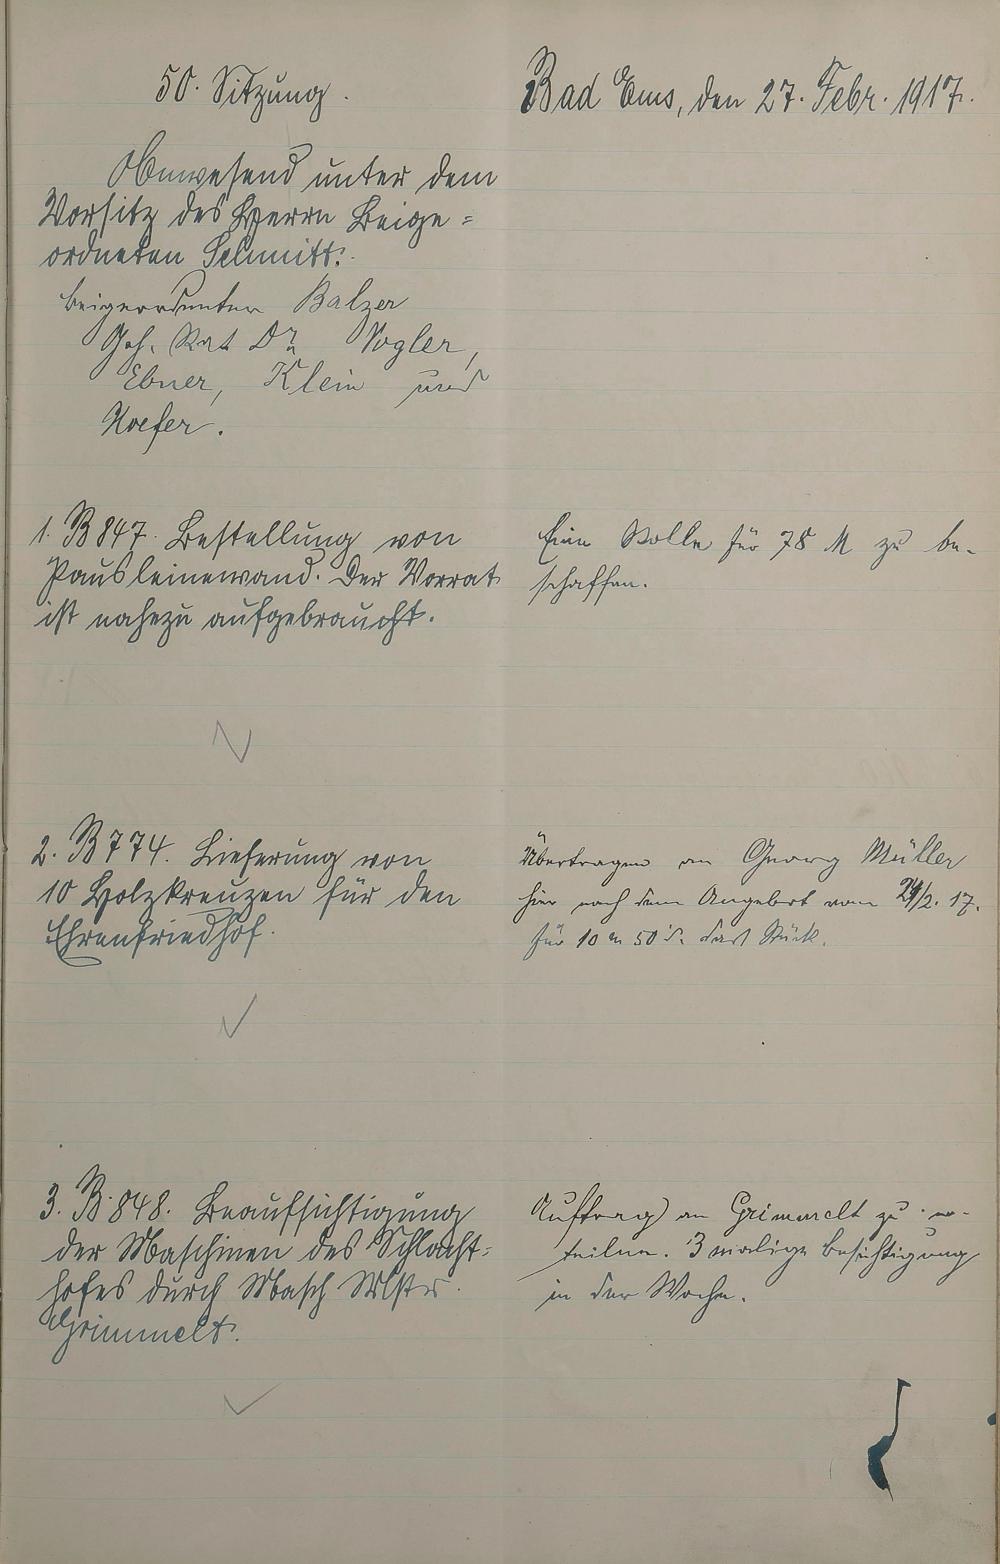 50. Sitzung.
Bad Ems, den 27. Febr. 1917.
Anwesend unter dem
Vorsitz des Herrn Beige=
ordneten Schmitt:
Beigeordneter Balzer
Geh. Rat Dr. Vogler,
Ebner, Klein und
Hoefer.
1. B 847. Bestellung von
Pausleinewand. Der Vorrat
ist nahezu aufgebraucht.
Eine Rolle für 78 M zu be-
schaffen.
2. B 774. Lieferung von
10 Holzkreuzen für den
Ehrenfriedhof.
Übertragen an Georg Müller
hier nach dem Angebot vom 24/2. 17.
für 10 M 50 d. das Stück.
3. B. 848. Beaufsichtigung
der Maschinen des Schlacht=
hofes durch Masch Mstr.
Grimmelt.
Auftrag an Grimmelt zu er-
teilen. 3 malige Besichtigung
in der Woche.